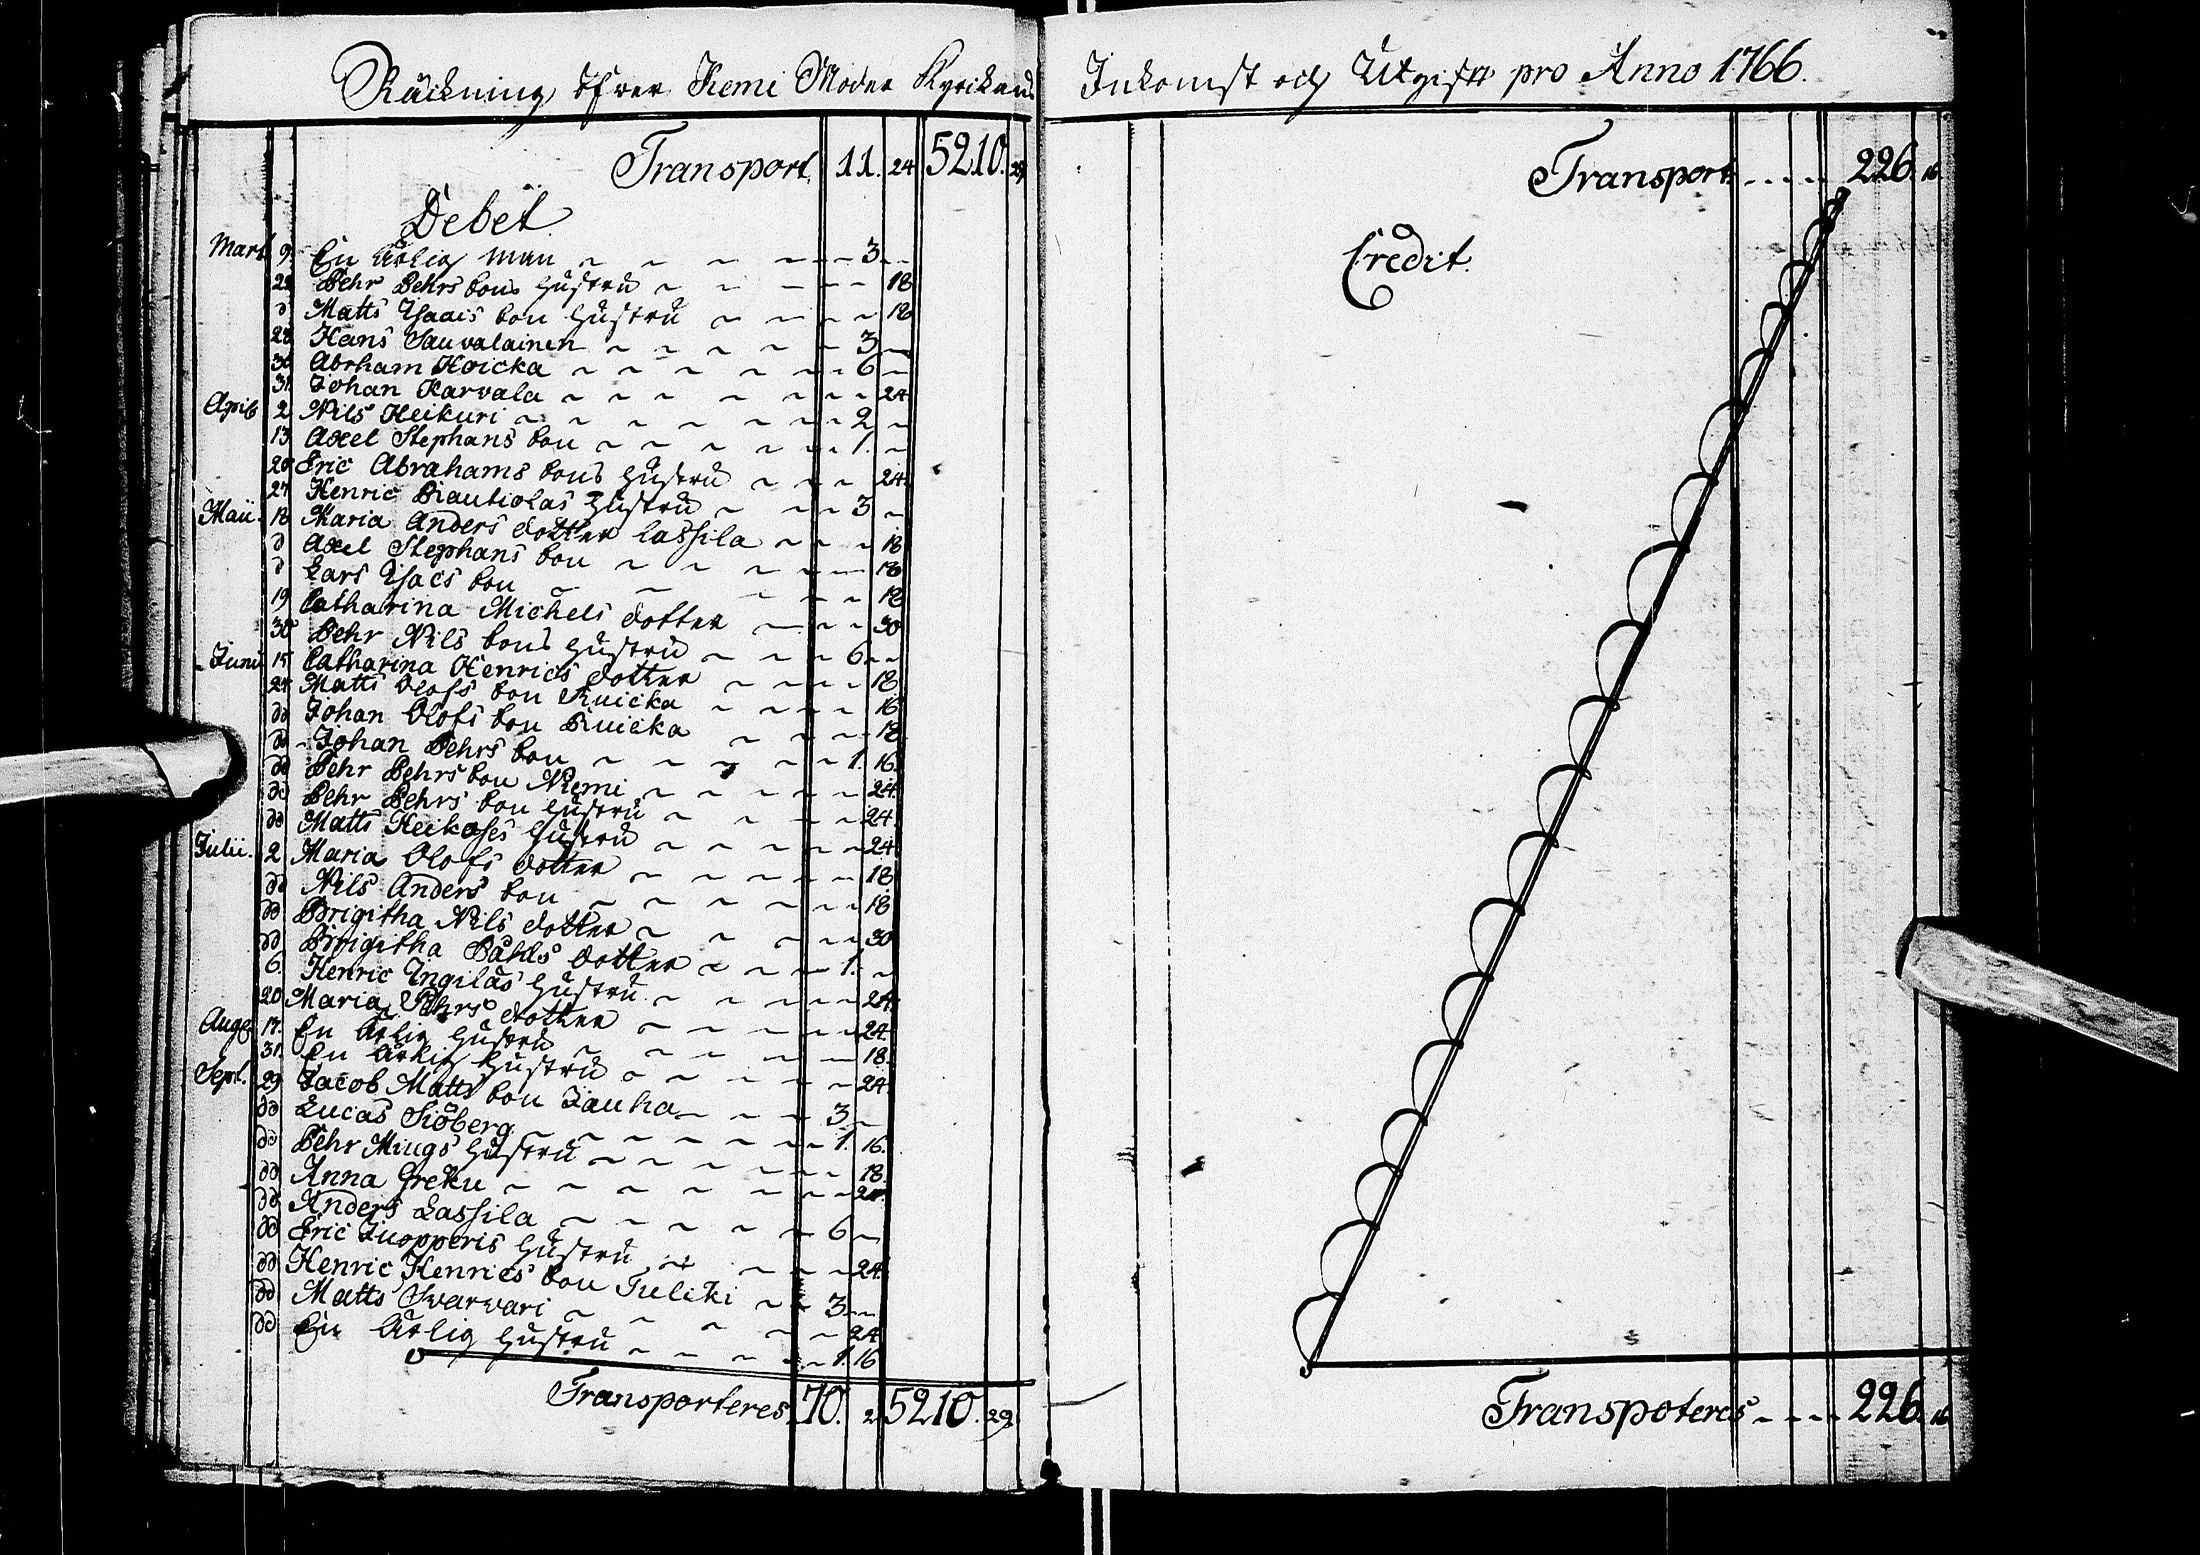 Räckning öfver Kemi Moder Kyrckans Inkomst och Utgift pro Anno 1766.
Transport. 11. 24 5210. 29
Debet
Mart 9. En ärlig man 3 -
22 Pehr Pehrs sons hustru 18
d Matts Isaacs son hustru 18
28 Hans Sauvalainen 3 -
30 Abrham Hoicka 6 -
31. Johan Karvala 24
April 2 Nils Heikuri 2 -
13 Axel Stephans son 1. -
20 Eric Abrahams sons hustru 24
27 Henric Piautiolas hustru 3 -
Maii. 18 Maria Anders dotter Lassila 18
d Axel Stephans son 18
d Lars Isacs son 18
19 Catharina Michels dotter 30
30 Pehr Nils sons hustru 6 -
Junii 15 Catharina Henrics dotter 18
24 Matts Olofs son Ruicka 16
dd Johan Olofs son Ruicka 18
dd Johan Pehrs son 1. 16
dd Pehr Pehrs son Niemi 24
dd Pehr Pehrs son hustru 24.
dd Matts Heikases hustru 24
Julii. 2 Maria Olofs dotter 18
dd Nils Anders son 18
dd Brigitha Nils dotter 30
dd Brigitha Påhls dotter 1. -
6. Henric Ingilas hustru 24
20 Maria Pehrs dotter 24
Aug. 17. En ärlig hustru 18.
31. En ärlig hustru 24
Sept. 29 Jacob Matts son Jauha 3 -
dd Lucas Siöberg 1. 16.
dd Pehr Mings hustru 18.
dd Anna Greku 24.
dd Anders Lassila 6 -
dd Eric Juopperis hustru 24
dd Henric Henrics son Tuliki 3 -
dd Matts Svarvari 24
dd En ärlig hustru 1. 16
Transporteres 70. 2 5210. 29
Transport 226. 16
Credit.
Transpoteres 226. 16